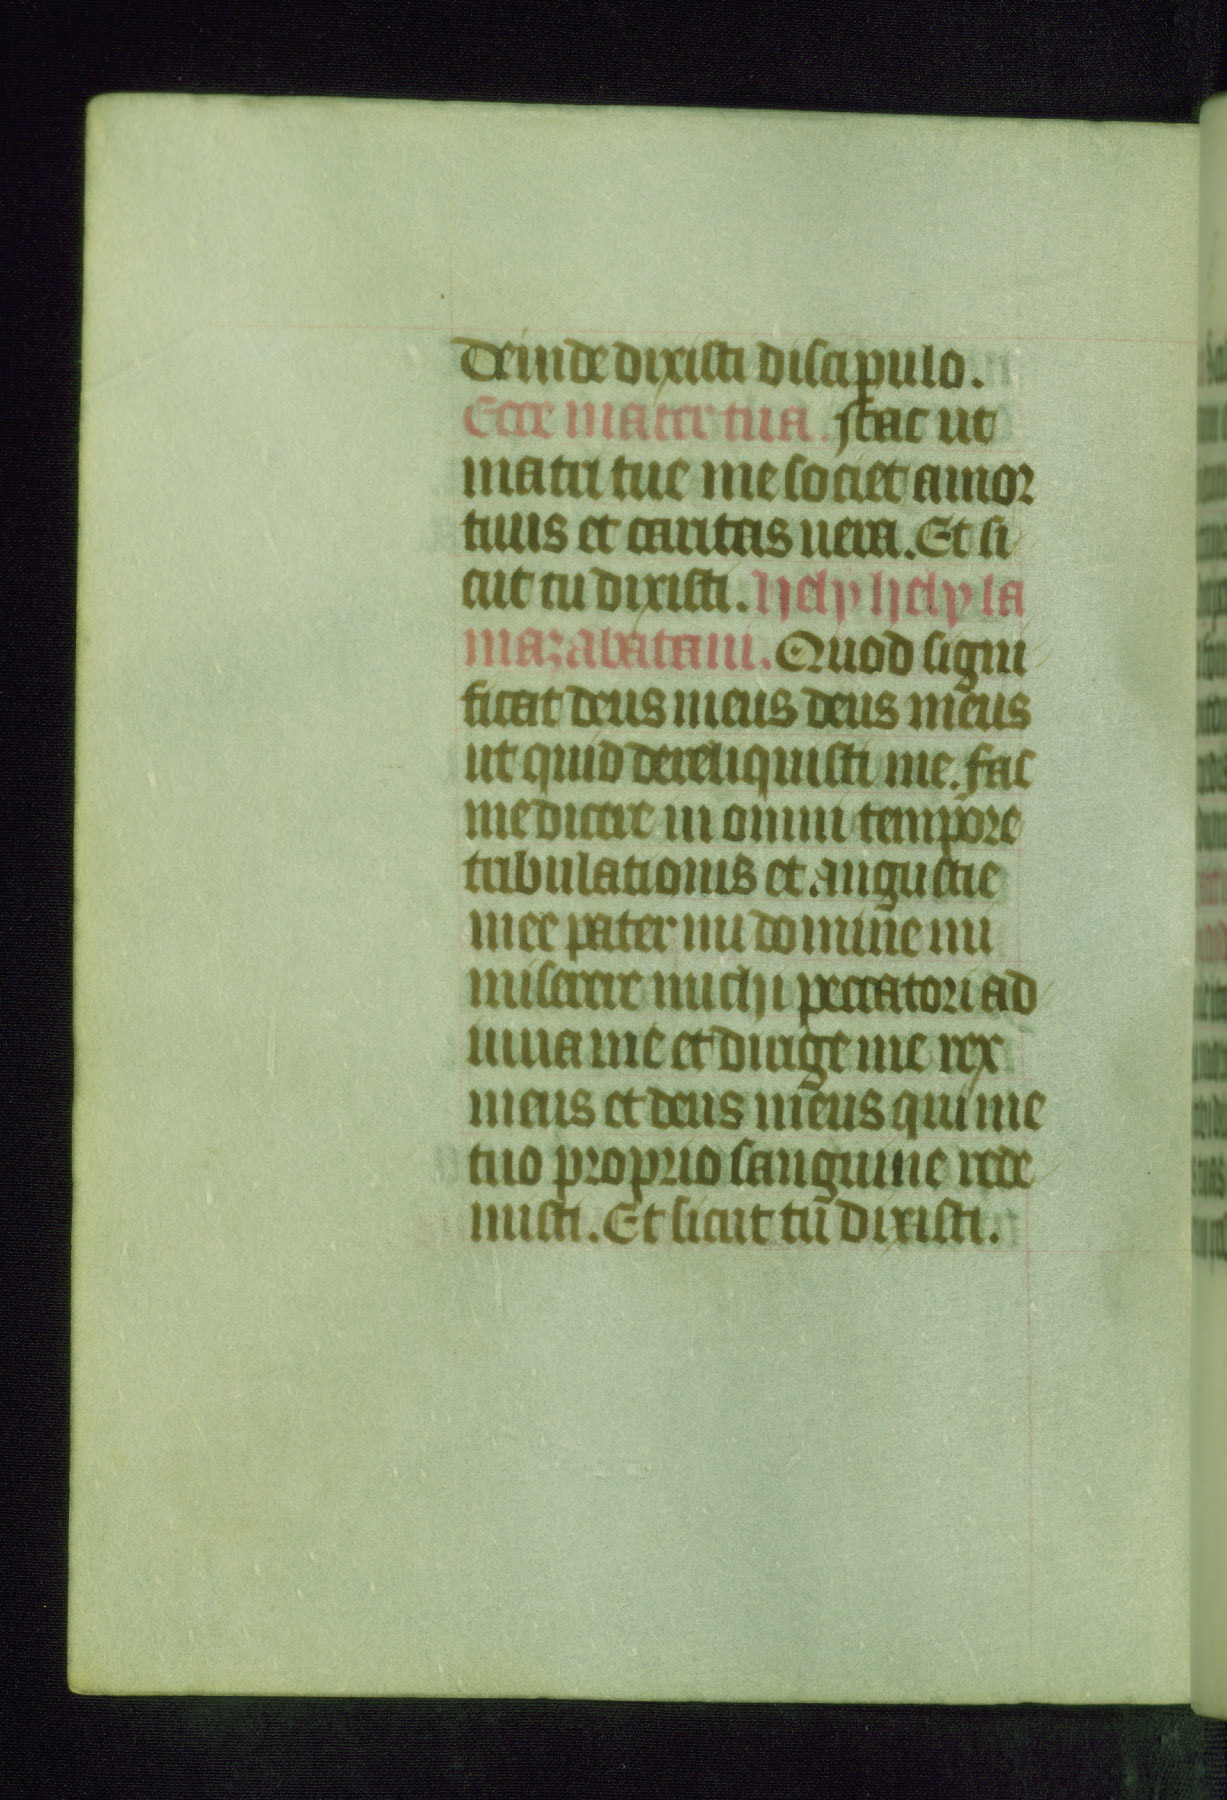 Deinde dixisti discipulo.
Ecce mater tua. ffac ut
matri tue me societ amor
tuus et caritas uera. Et si
cut tu dixisti. hely hely la
mazabatani. Quod signi
ficat deus meus deus meus
ut quid dereliquisti me. fac
me dicere in omni tempore
tribulationis et angustie
mee pater mi domine mi
miserere michi peccatori ad
iuua me et dirige me rex
meus et deus meus qui me
tuo proprio sanguine rede
misti. Et sicut tu dixisti.